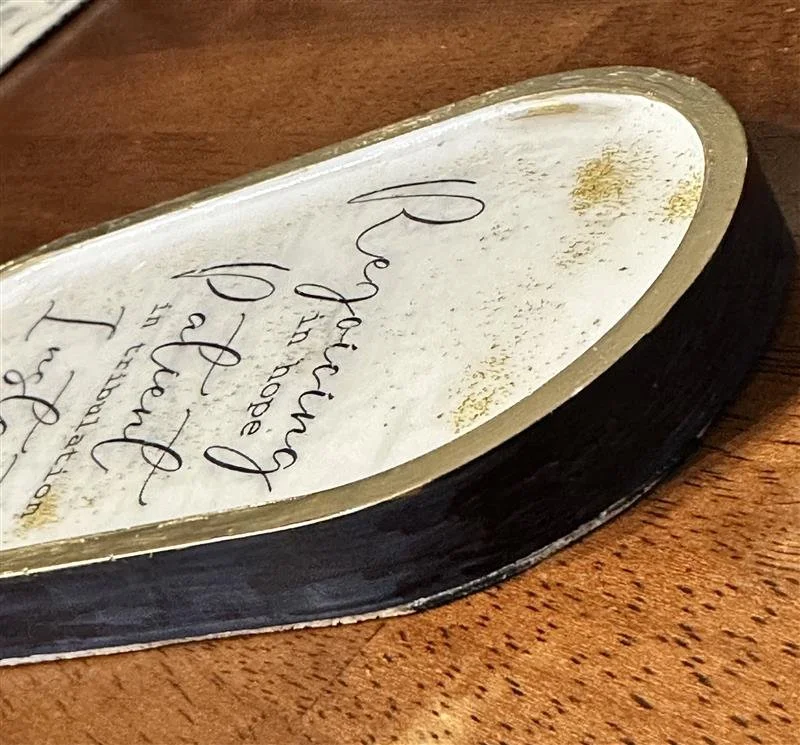 Rejoicing
in hope
Patient
in tribulation